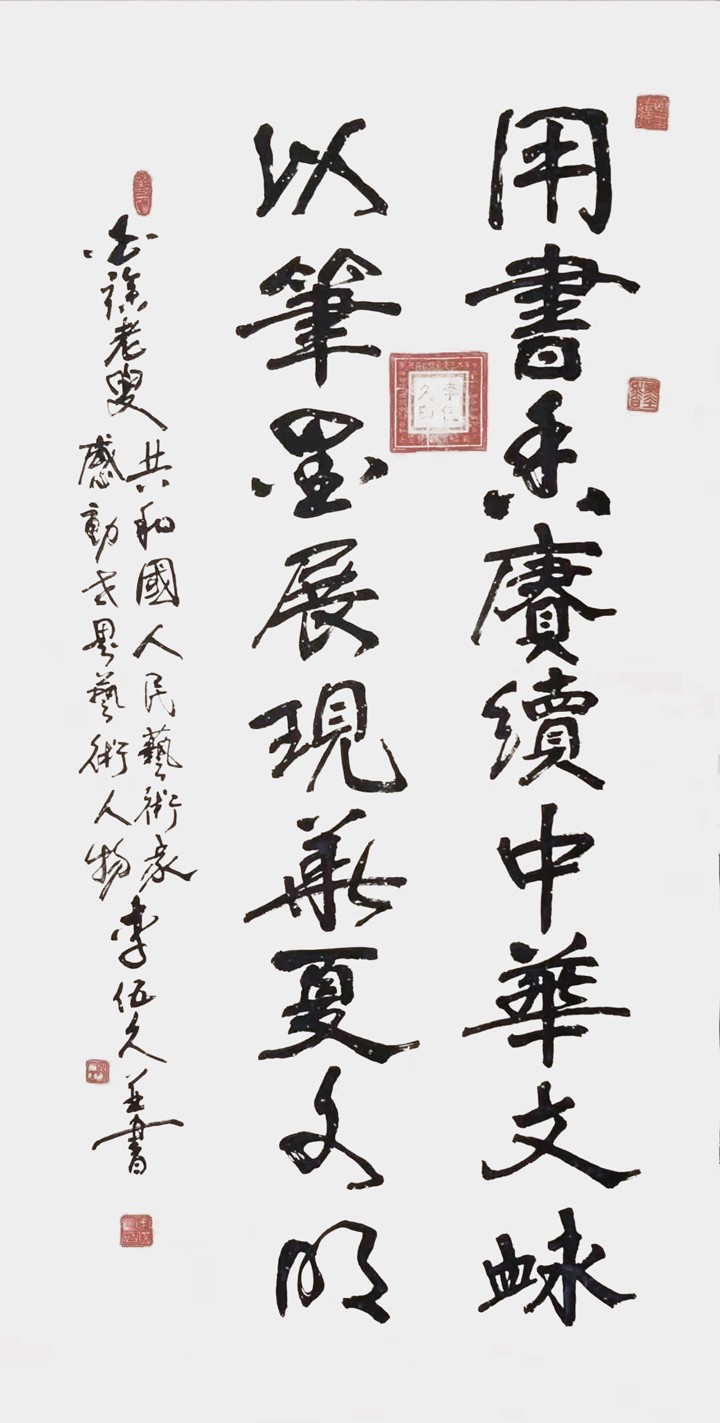 用書香賡續中華文脉
以筆墨展現華夏文明
徐老叟
共和國人民藝術家
感動世界藝術人物
李伍久並書
李伍久印